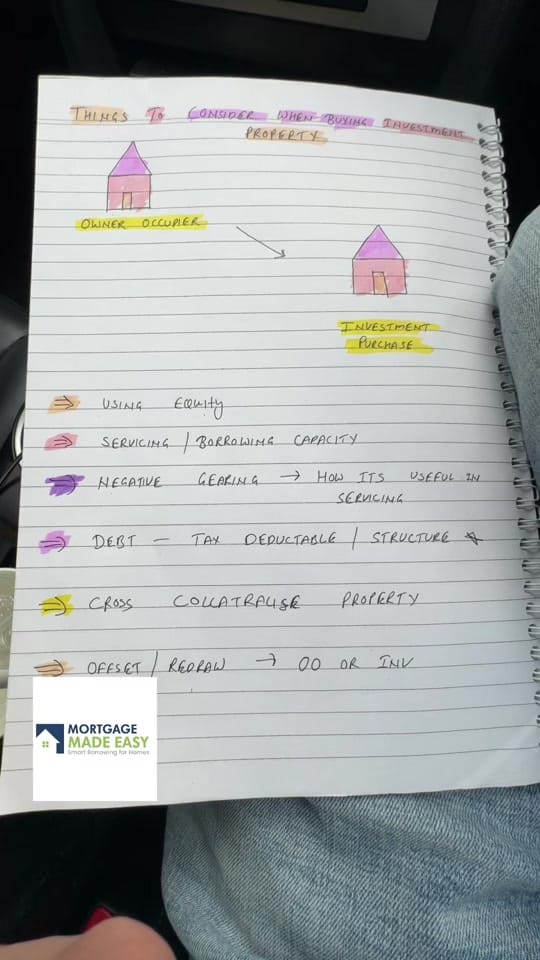 THINGS TO CONSIDER WHEN BUYING INVESTMENT
PROPERTY
OWNER OCCUPIER
INVESTMENT
PURCHASE
⇒ USING EQUITY
⇒ SERVICING / BORROWING CAPACITY
⇒ NEGATIVE GEARING → HOW ITS USEFUL IN
SERVICING
⇒ DEBT – TAX DEDUCTABLE / STRUCTURE ☆
⇒ CROSS COLLATRALISE PROPERTY
⇒ OFFSET / REDRAW → OO OR INV
MORTGAGE
MADE EASY
Smart Borrowing for Homes